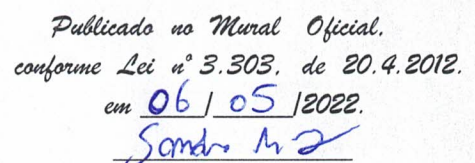 Publicado no Mural Oficial,
conforme Lei nº 3.303, de 20.4.2012.
em 06 / 05 /2022.